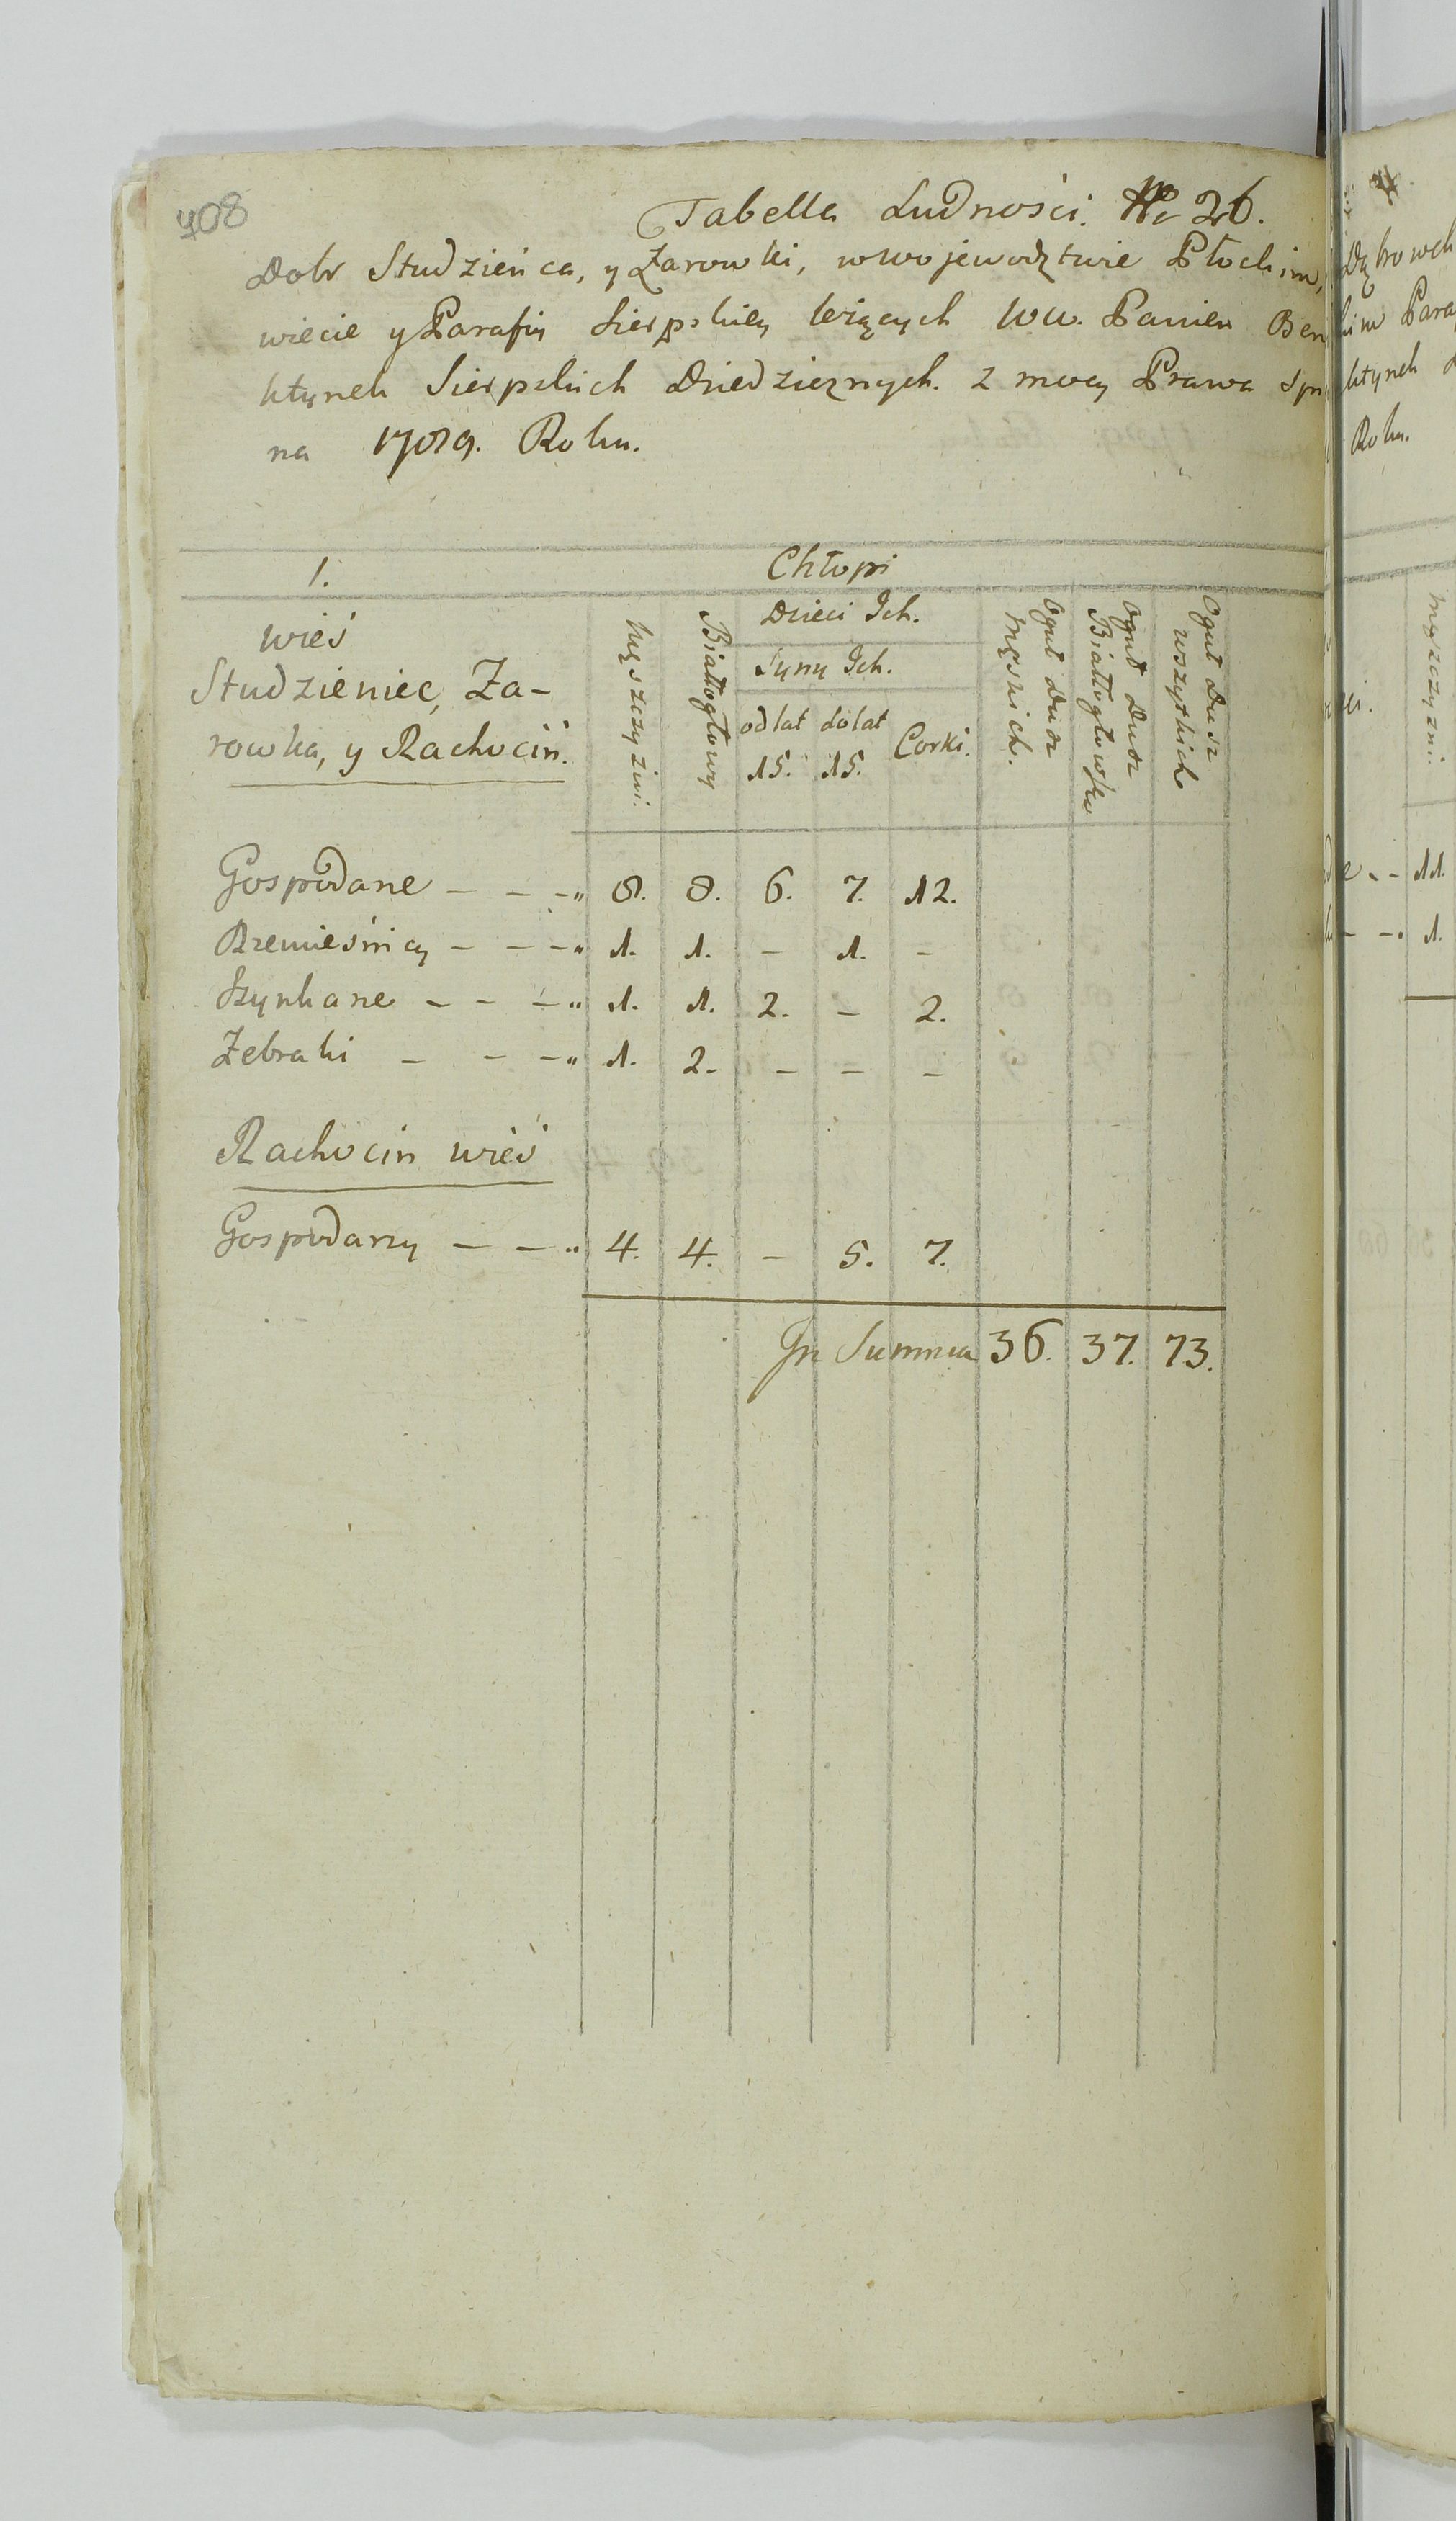 408
Tabella Ludności. No 26.
Dobr Studzieńca, y Zarowki, w wojewodztwie Płockim,
wiecie y Parafiy Sierpskiey leżących WW. Panien Ben
ktynek Sierpskich Dziedzicznych. z mocy Prawa Spi
na 1789. Roku.
1.
Chłopi
wieś
Studzieniec, Za-
rowka, y Rachocin.
Męszczyzni.
Białłogłowy
Dzieci Ich.
Syny Ich.
od lat 15.
do lat 15.
Corki.
Oguł Dusz Męskich.
Oguł Dusz Białłogłowskw
Oguł Dusz wszystkich
Gospodarze - - -" 8. 8. 6. 7. 12.
Rzemieśnicy - - -" 1. 1. - 1. -
Szynkarze - - -" 1. 1. 2. - 2.
Zebraki - - -" 1. 2. - - -
Rachocin wieś
Gospodarzy - - " 4. 4. - 5. 7.
In Summa 36. 37. 73.
Roku.
11.
1.